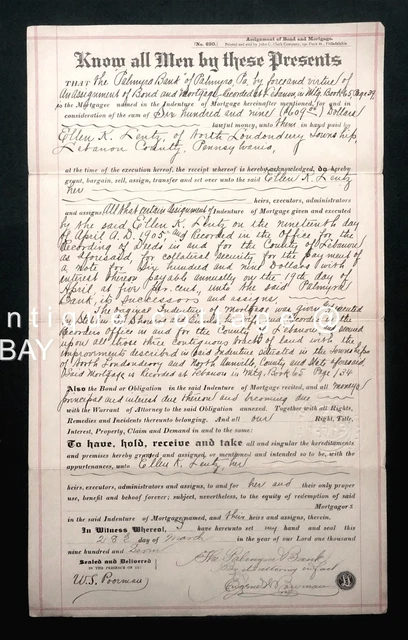 Assignment of Bond and Mortgage.
(No. 690.) Printed and sold by John C. Clark Company, Philadelphia
Know all Men by these Presents
THAT the Palmyra Bank of Palmyra, Pa, by force and virtue of
An Assignment of Bond and Mortgage recorded at Lebanon, in Mtg. Book 65, Page 39,
the Mortgagee named in the Indenture of Mortgage hereinafter mentioned, for and in
consideration of the sum of Six hundred and nine (609 00) Dollars
lawful money, unto them in hand paid by
Ellen K. Lentz, of North Londonderry Township,
Lebanon County, Pennsylvania,
at the time of the execution hereof, the receipt whereof is hereby acknowledged, do hereby
grant, bargain, sell, assign, transfer and set over unto the said Ellen K. Lentz
her
heirs, executors, administrators
and assigns, All that certain Assignment of Indenture of Mortgage given and executed
by the said Ellen K. Lentz on the nineteenth day
of April A.D. 1905 and Recorded in the Office for the
Recording of Deeds in and for the County of Lebanon
as aforesaid, for collateral security for the payment of
a note for Six hundred and nine Dollars with
interest thereon payable annually on the 19th day of
April at five per cent, unto the said Palmyra
Bank, its successors and assigns.
The original Indenture of Mortgage was given
and Recorded in the
Recorders office in and for the County of Lebanon, Pa secured
upon all those three contiguous tracts of land with the
improvements described in said Indenture situated in the Township
of North Londonderry and North Annville County and State aforesaid
Said Mortgage is Recorded at Lebanon in Mtg. Book 65 Page 134
Also the Bond or Obligation in the said Indenture of Mortgage recited, and all moneys
principal and interest due thereon and becoming due
with the Warrant of Attorney to the said Obligation annexed. Together with all Rights,
Remedies and Incidents thereunto belonging. And all our Right, Title,
Interest, Property, Claim and Demand in and to the same:
To have, hold, receive and take all and singular the hereditaments
and premises hereby granted and assigned, or mentioned and intended so to be, with the
appurtenances, unto Ellen K. Lentz, her
heirs, executors, administrators and assigns, to and for her and their only proper
use, benefit and behoof forever; subject, nevertheless, to the equity of redemption of said
Mortgagor s
in the said Indenture of Mortgage named, and their heirs and assigns, therein.
In Witness Whereof, I have hereunto set my hand and seal this
28th day of March in the year of our Lord one thousand
nine hundred and Seven
Sealed and Delivered
IN THE PRESENCE OF US:
W. S. Poorman
The Palmyra Bank
By its attorney in fact
BAY